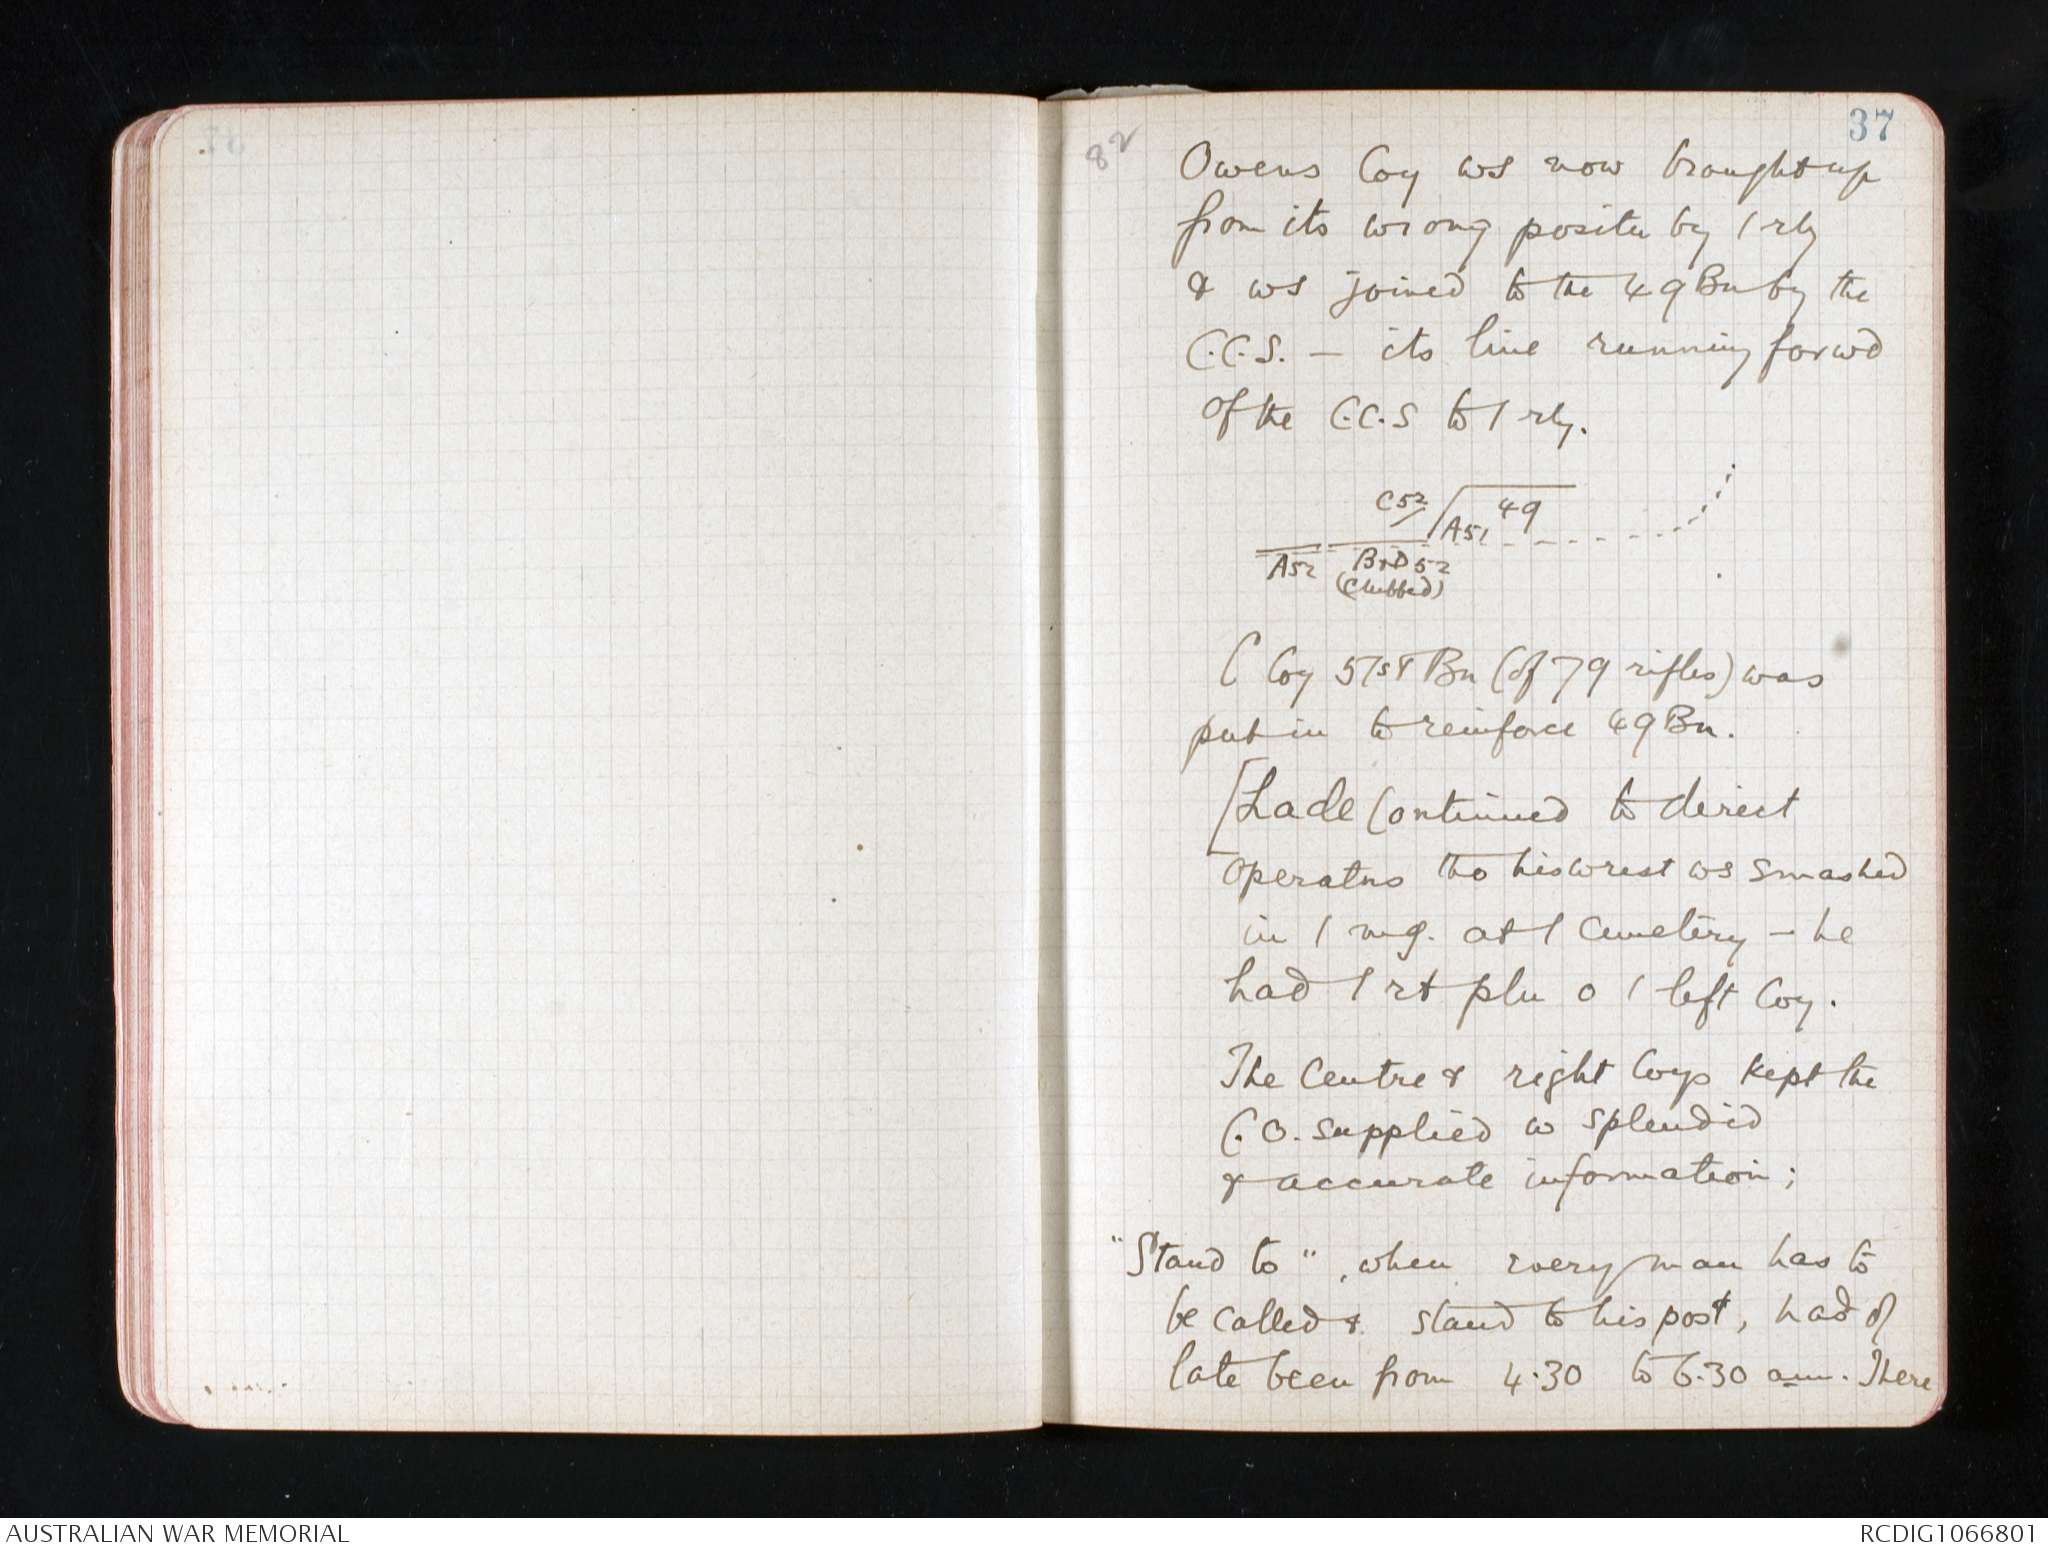 37
82
Owens Coy ws now brought up
from its wrong positn by / rly
& ws joined to the 49 Bn by the
C.C.S. — its line running forwd
of the C.C.S to / rly.
C52 / A51 49
A52 B&D 52
(Clubbed)
C Coy 51st Bn (of 79 rifles) was
put in to reinforce 49 Bn.
[Lade continued to direct
operatns tho his wrist ws smashed
in / mg. at / Cemetery – he
had / rt pln o / left Coy.
The Centre & right Coys kept the
C.O. supplied w splendid
& accurate information;
"Stand to", when every man has to
be called & stand to his post, had of
late been from 4.30 to 6.30 a.m. There
AUSTRALIAN WAR MEMORIAL
RCDIG1066801